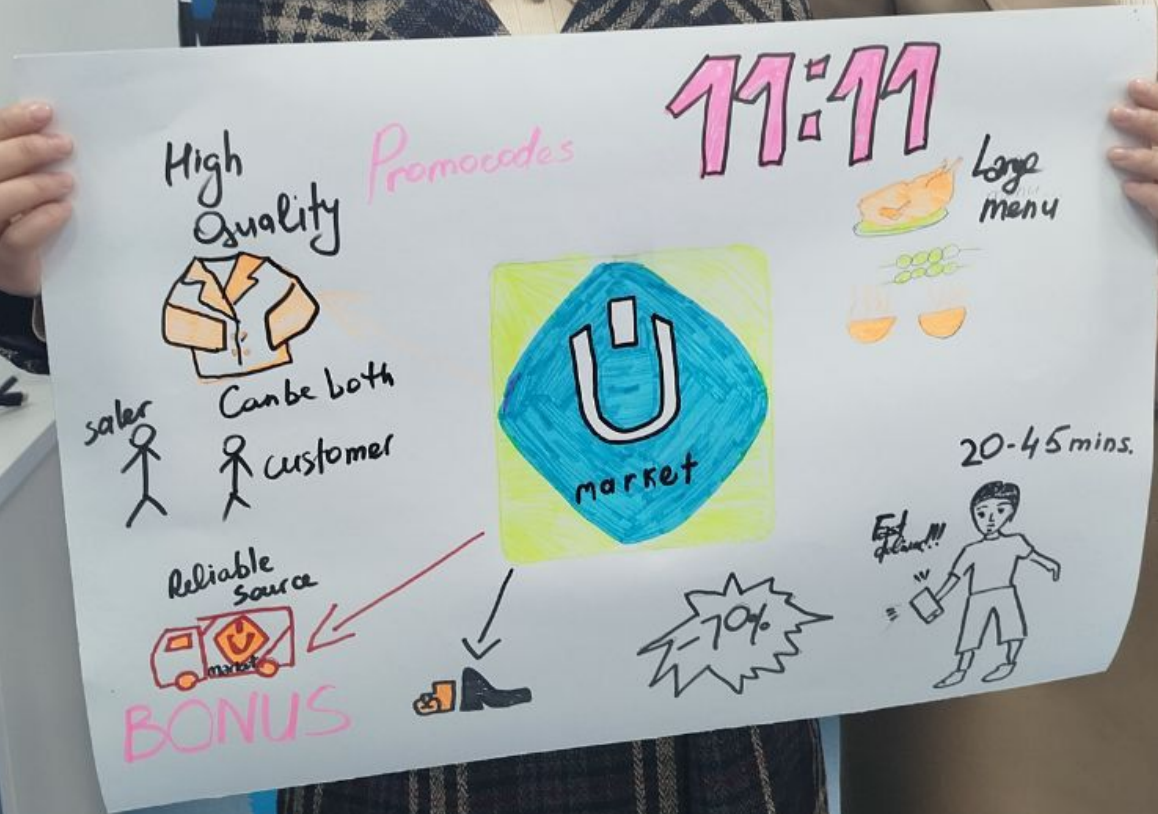 11:11
Promocodes
High
Quality
Large
menu
Can be both
saler
customer
market
20-45 mins.
Fast
Reliable
source
market
-70%
BONUS